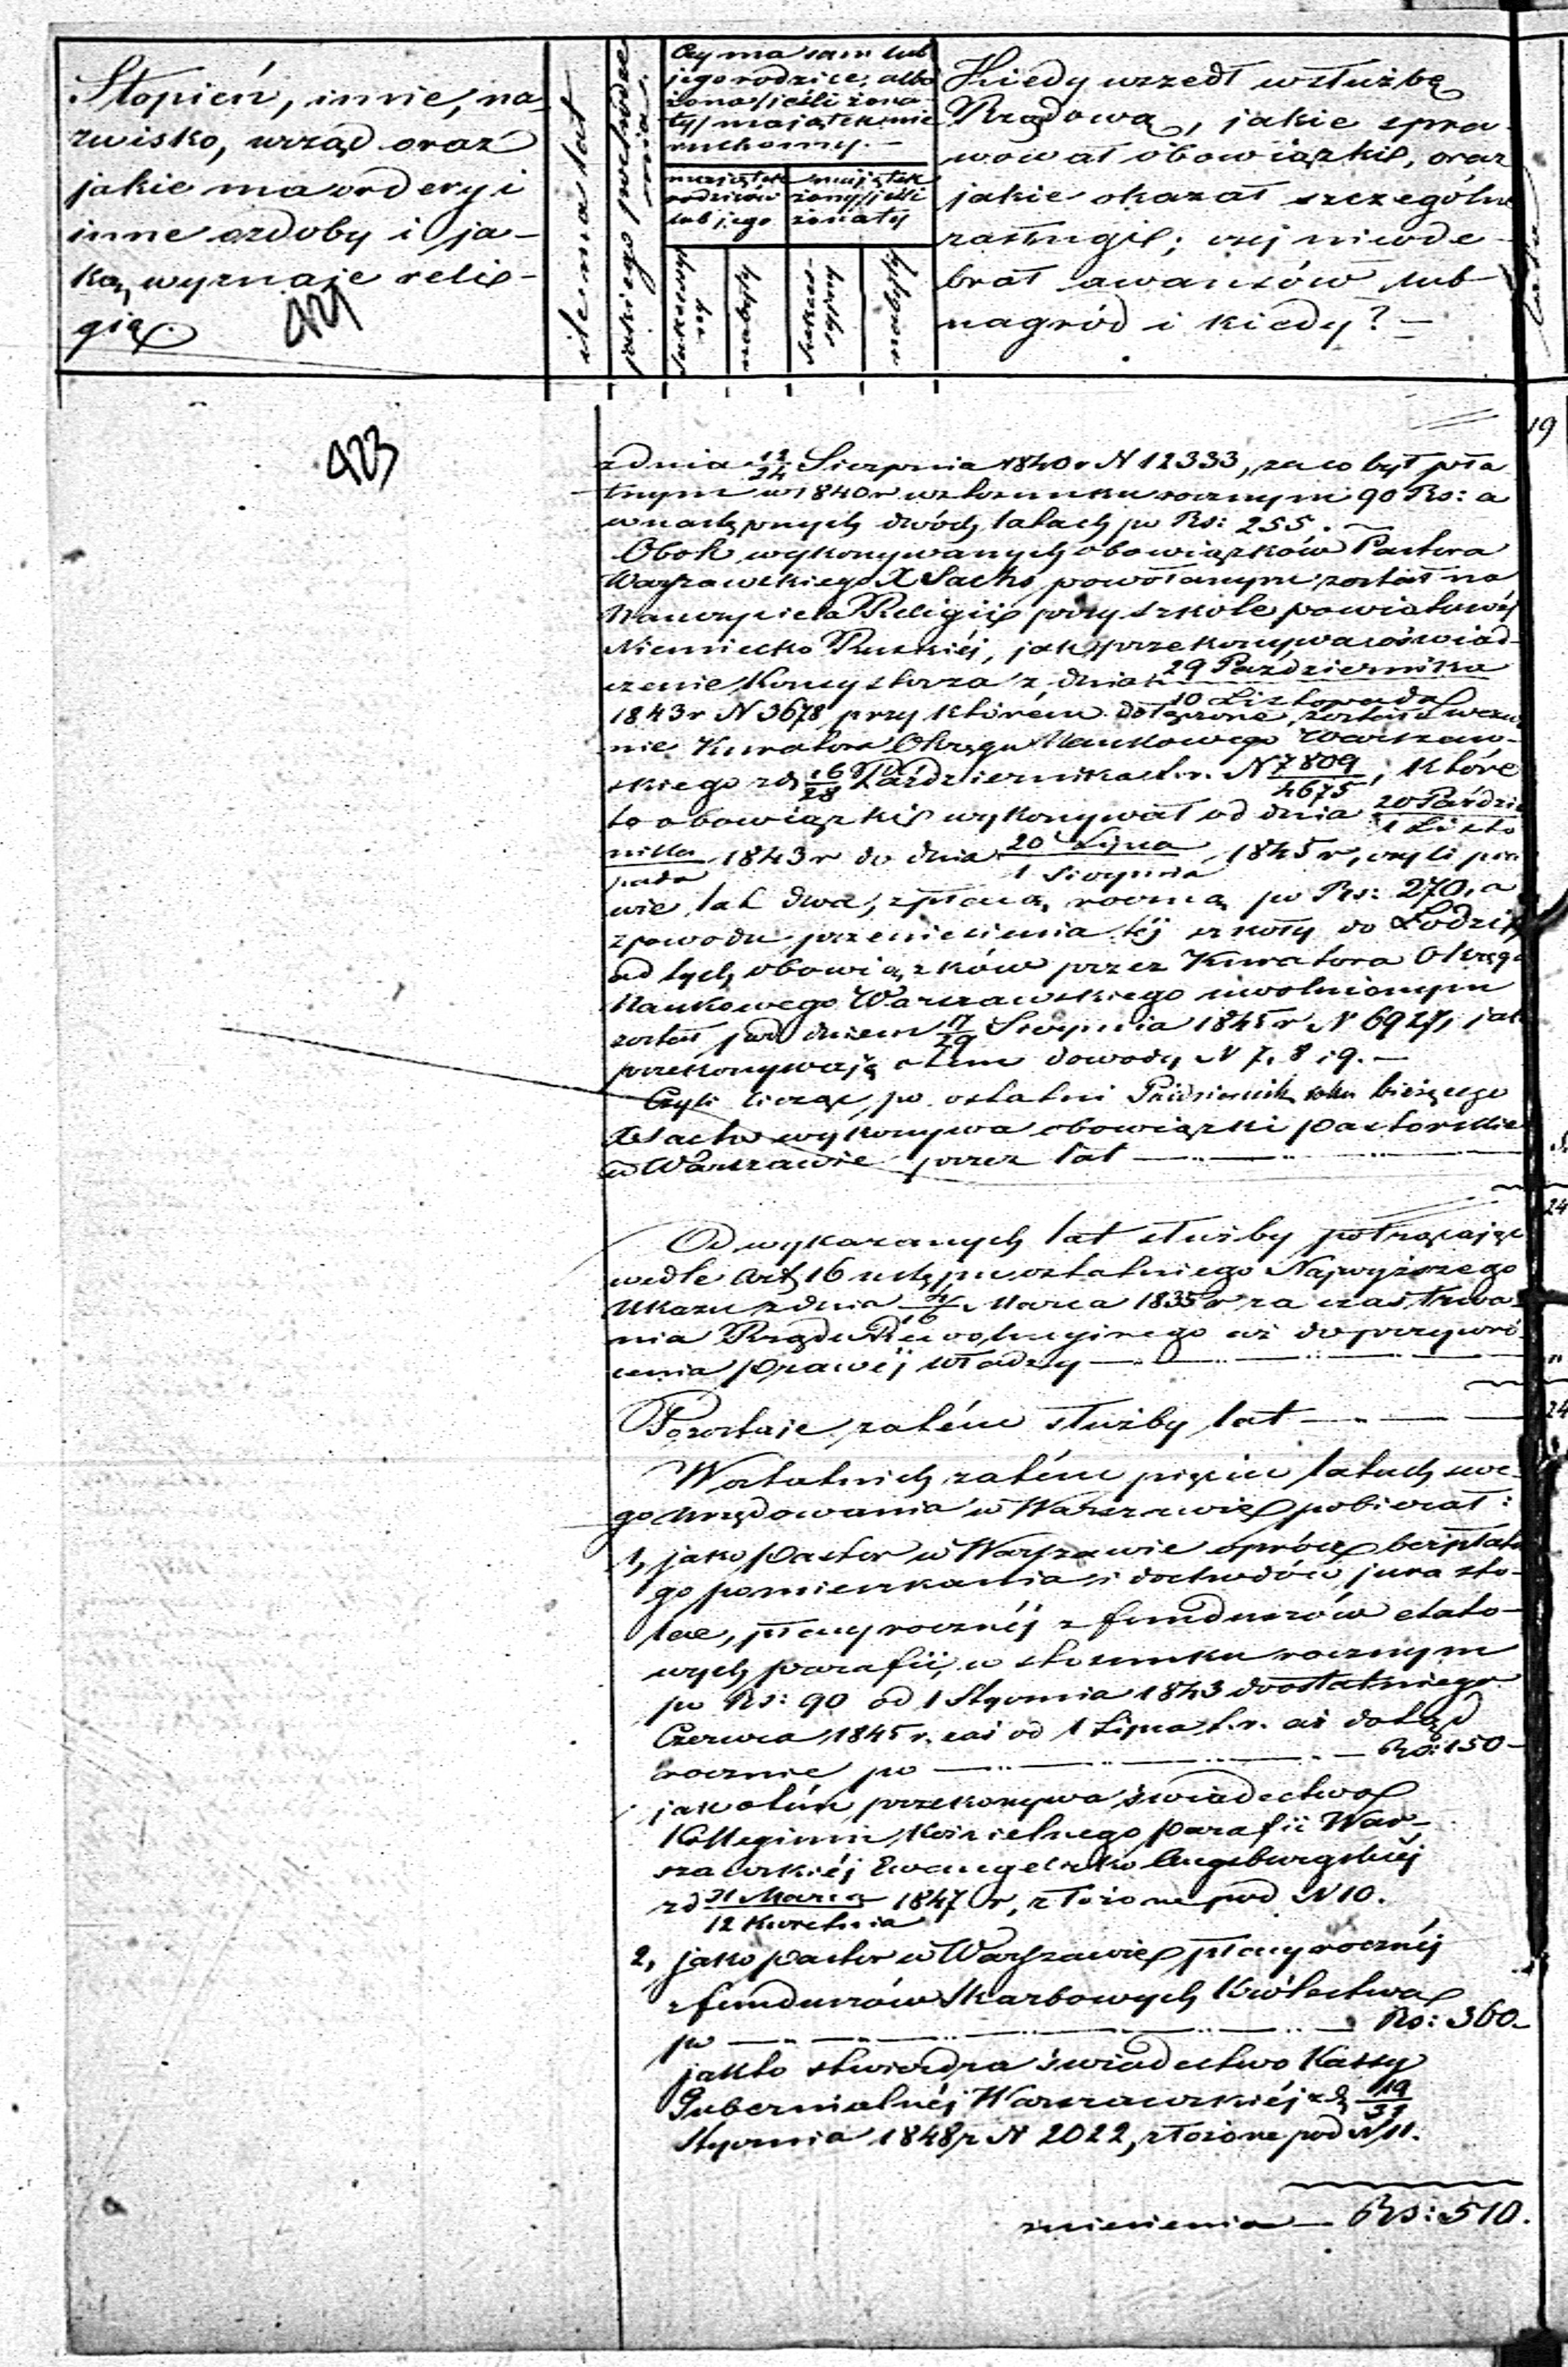 Stopień, imie, na-
zwisko, urząd oraz
jakie ma ordery i
inne ozdoby i ja-
ką wyznaje reli-
gią.
421
ile ma lat
jakiego pochodze
nia.
Czy ma sam lub
jego rodzice, albo
żona /jeśli żona
ty/ majątek nie
ruchomy. —
majątek
rodziców
lub jego
majątek
żony /jeśli
żonaty
sukcessyj
ny
nabyty
sukces-
syjny
nabyty
Kiedy wszedł w służbę
Rządową, jakie spra-
wował obowiązki, oraz
jakie okazał szczególne
zasługi; czy nie ode-
brał awansów lub
nagród i kiedy? —
423
19
z dnia 12/24 Sierpnia 1840 r N 12333, za co był pła
tnym w 1840 r w stosunku rocznym 90 Rs: a
w następnych dwóch latach po Rs: 255. —
Obok wykonywanych obowiązków Pastora
Warszawskiego X Sachs powołanym został na
Nauczyciela Religii przy szkole powiatowéj
Niemiecko Ruskiéj, jak przekonywa oświad-
czenie Konsystorza z dnia 29 Października
10 Listopada
1843 r N 3678 przy którém dołączone zostało wezw
nie Kuratora Okręgu Naukowego Warszaw-
skiego z d. 16/28 Października t. r. N 7809/4675, które
to obowiązki wykonywał od dnia 20 Paździe
1 Listo
nika
pada 1843 r do dnia 20 Lipca
1 Sierpnia 1845 r, czyli pra
wie lat dwa, z płacą roczną po Rs: 270, a
z powodu przeniesienia téj szkoły do Łodzi
od tych obowiązków przez Kuratora Okręgu
Naukowego Warszawskiego uwolnionym
został pod dniem 17/29 Sierpnia 1845 r N 6927, jak
przekonywają o tem dowody N 7, 8 i 9. —
Czyli licząc po ostatni Październik roku bieżącego
X Sachs wykonywa obowiązki pastorskie
w Warszawie przez lat —
24
Od wykazanych lat służby potrącając
wedle Art. 16 ustępu ostatniego Najwyższego
Ukazu z dnia 4/16 Marca 1835 r za czas trwa-
nia Rządu Rewolucyjnego aż do przywró
cenia prawéj władzy —
Pozostaje zatém służby lat —
24
W ostatnich zatém pięciu latach swe-
go urzędowania w Warszawie pobierał:
1, jako Pastor w Warszawie oprócz bezpłatne
go pomieszkania i dochodów jura sto-
lae, płacy rocznéj z funduszów etato-
wych parafii, w stosunku rocznym
po Rs: 90 od 1 Stycznia 1843 do ostatniego
Czerwca 1845 r. zaś od 1 Lipca t. r. aż dotąd
rocznie po — Rs: 150 —
jak o tém przekonywa świadectwo
Kollegium Kościelnego parafii War-
szawskiéj Ewangelicko Augsburgskiéj
z d 31 Marca
12 Kwietnia 1847 r, złożone pod N 10.
2, jako pastor w Warszawie płacy rocznéj
z funduszów Skarbowych Królestwa
po — Rs: 360 —
jak to stwierdza świadectwo Kassy
Gubernialnéj Warszawskiéj z d. 19/31
Stycznia 1848 r N 2022, złożone pod N 11.
zniesienia — Rs: 510.